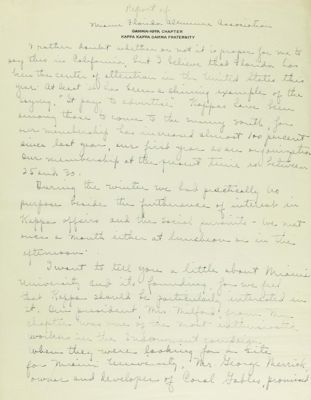 Report of
Miami Florida Alumnae Association
GAMMA-IOTA CHAPTER
KAPPA KAPPA GAMMA FRATERNITY
I rather doubt whether or not it is proper for me to
say this in California, but I believe that Florida has
been the center of attention in the United States this
year. At least it has been a shining example of the
saying, "It pays to advertise". Kappas have been
among those to come to the sunny South, for
our membership has increased almost 100 percent
since last year, our first year as an organization.
Our membership at the present time is between
25 and 30.
During the winter we had practically no
purpose beside the furtherance of interest in
Kappa affairs and the social pursuits - we met
once a month either at luncheon or in the
afternoon.
I want to tell you a little about Miami
University and its founding, for we feel
that Kappa should be particularly interested in
it. Our president, Mrs. from
chapter was one of the most enthusiastic
workers in the endowment campaign.
When they were looking for a site
for Miami University, Mr. George Merrick,
owner and developer of Coral Gables, promised